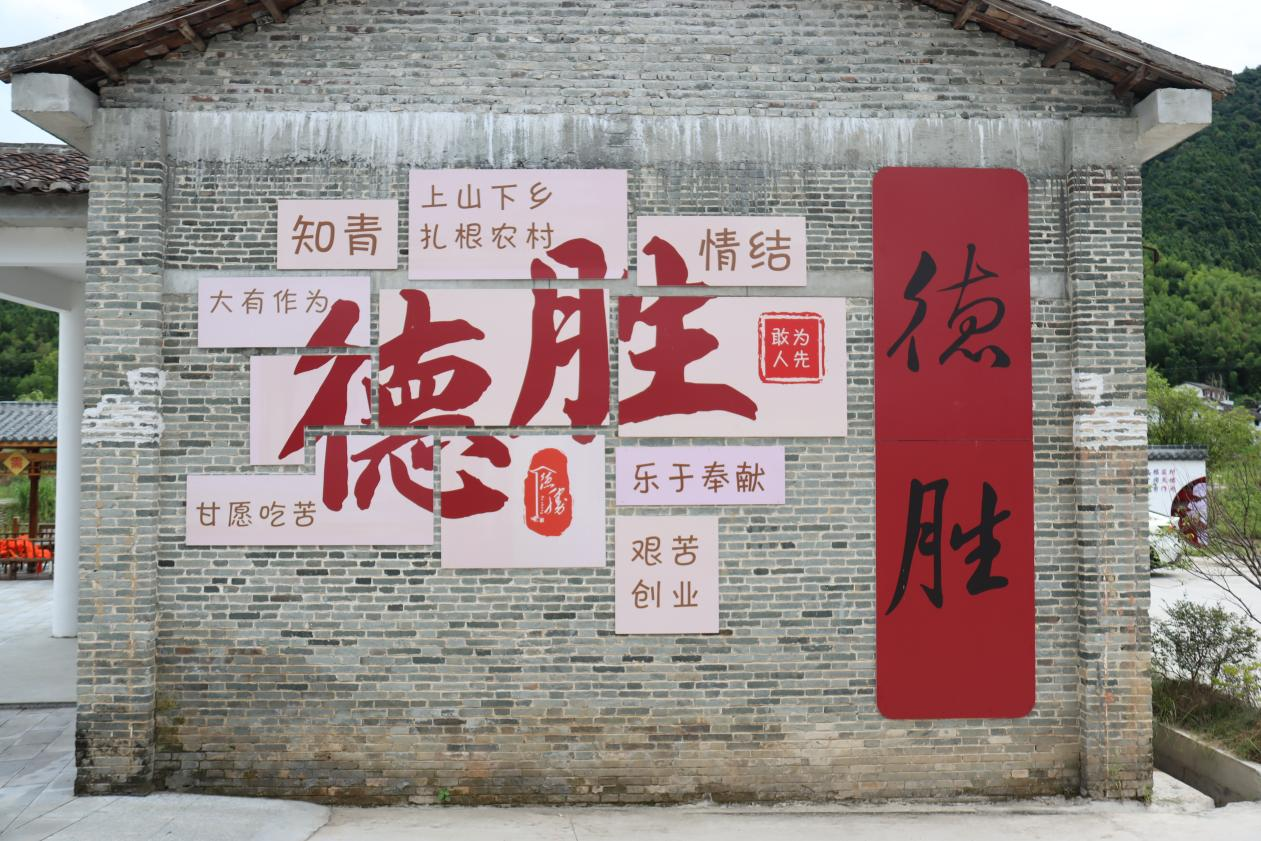 知青
上山下乡
扎根农村
情结
大有作为
德胜
敢为
人先
甘愿吃苦
德勝
乐于奉献
艰苦
创业
德
胜